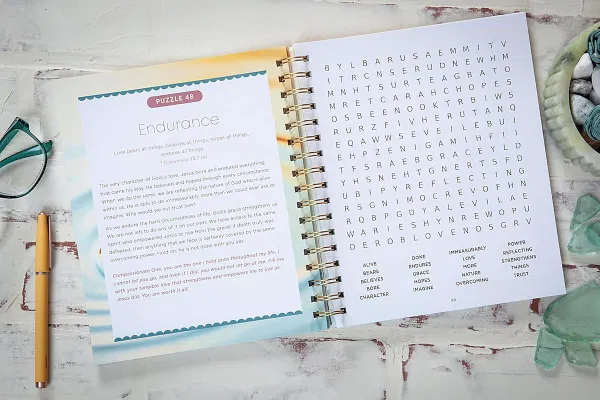 PUZZLE 48
Endurance
Love bears all things, believes all things, hopes all things,
endures all things.
1 Corinthians 13:7 ESV
The very character of God is love. Jesus bore and endured everything
that came his way. He believed and hoped through every circumstance.
When we do the same, we are reflecting the nature of God who is alive
within us. He is able to do immeasurably more than we could ever ask or
imagine. Why would we not trust him?
As we endure the hard circumstances of life, God's grace strengthens us.
We are not left to do any of it on our own. We have access to the same
Spirit who empowered Jesus to rise from the grave! If death truly was
defeated, then anything that we face is certainly covered by the same
overcoming power. Hold on; he is not done with you yet.
Compassionate One, you are the one I hold onto throughout my life. I
cannot let you go, and even if I did, you would not let go of me. Fill me
with your tangible love that strengthens and empowers me to live as
Jesus did. You are worth it all!
B Y L B A R U S A E M M I T V
I T R C N S E R U D N E W H M
M N H T S U R T E A G B A T O
M R E T C A R A H C H O P E S
O S B E E N O D K T R B I W S
R U R Z F I V H E R U T A N Q
E Q A W W S E V E I L E B U I
E H P Z E N I G A M I H F I I
T F S R A E B G R A C E Y L D
Y H S N E H T G N E R T S F D
U B I P Y R E F L E C T I N G
R S G N I M O C R E V O F H N
R Q B P G D Y A L E V I L A E
W A R I E S H Y N R E W O P U V
D E R O B L O V E N O S G R V
ALIVE
BEARS
BELIEVES
BORE
CHARACTER
DONE
ENDURES
GRACE
HOPES
IMAGINE
IMMEASURABLY
LOVE
MORE
NATURE
OVERCOMING
POWER
REFLECTING
STRENGTHENS
THINGS
TRUST